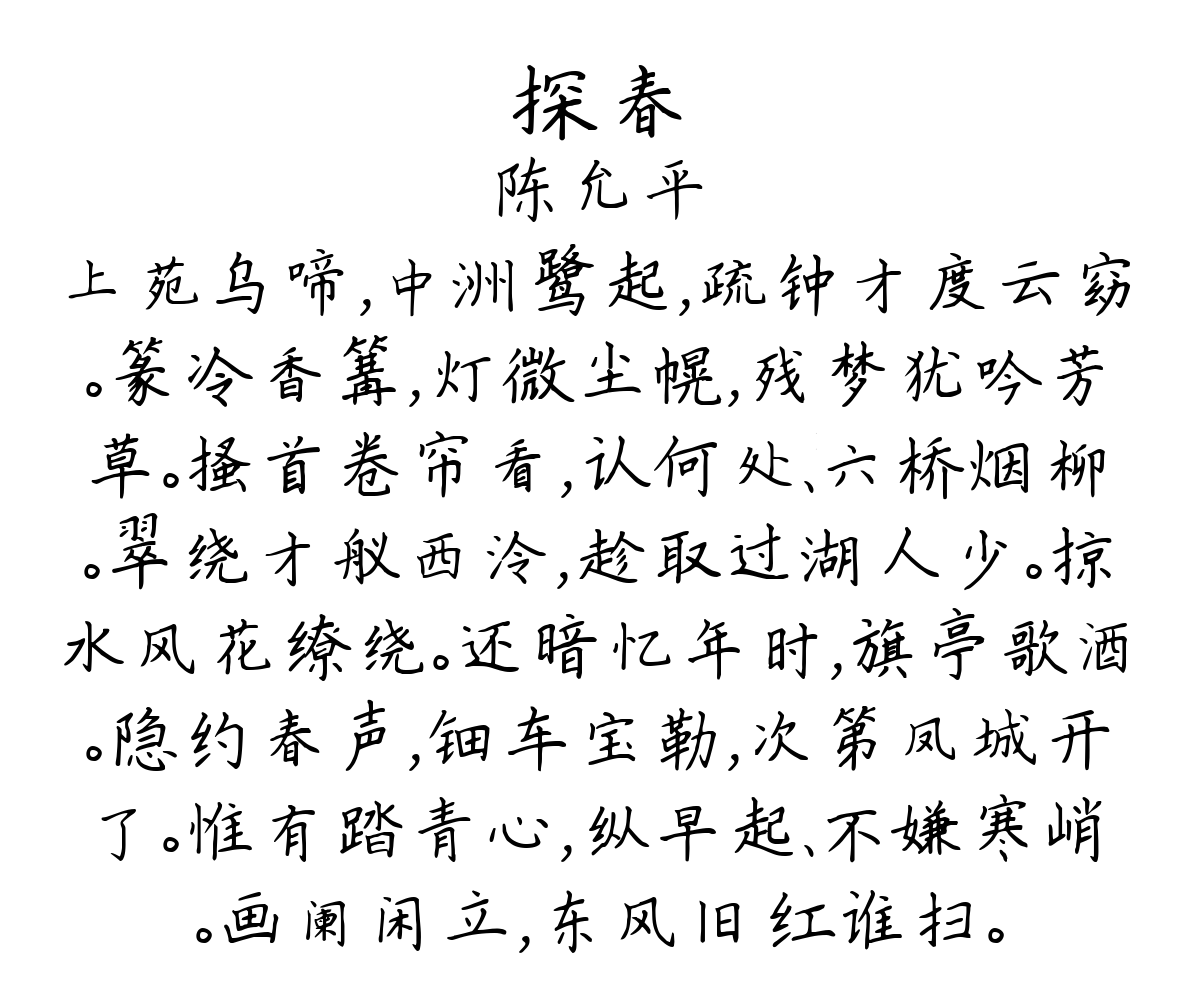 探春
陈允平
上苑乌啼,中洲鹭起,疏钟才度云窈
。篆冷香篝,灯微尘幌,残梦犹吟芳
草。搔首卷帘看,认何处、六桥烟柳
。翠绕才舣西泠,趁取过湖人少。掠
水风花缭绕。还暗忆年时,旗亭歌酒
。隐约春声,钿车宝勒,次第凤城开
了。惟有踏青心,纵早起、不嫌寒峭
。画阑闲立,东风旧红谁扫。